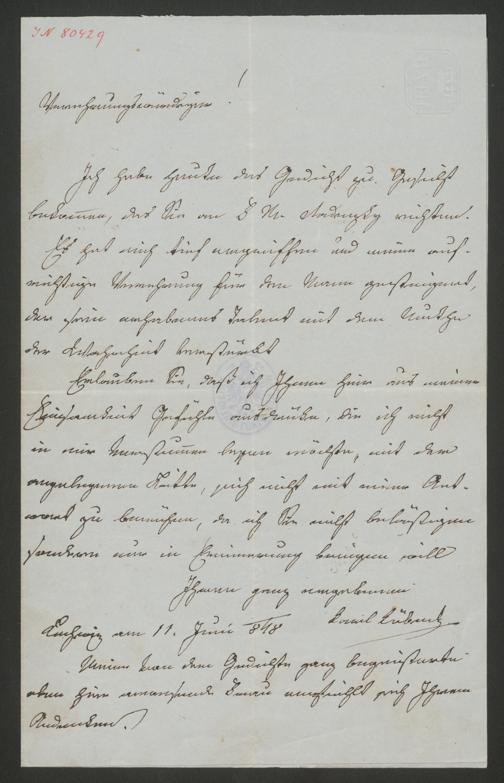 IN 80429
Verehrungswürdiger !
Ich habe heute das Gedicht zu Gesicht
bekommen, das Sie an F. M. Radetzky richteten.
Es hat mich tief ergriffen und meine auf-
richtige Verehrung für den Mann gesteigert,
der sein erhabenes Talent mit dem Muthe
der Wahrheit
Erlauben Sie, daß ich Ihnen hier aus meiner
Einsamkeit Gefühle ausdrücke, die ich nicht
in mir verstummen lassen möchte, mit der
angelegenen Bitte, sich nicht mit einer Ant-
wort zu bemühen, da ich Sie nicht belästigen
sondern nur in Erinnerung bringen will
Ihnen ganz ergebener
am 11. Juni 848
Meine von dem Gedichte ganz begeisterte
eben hier anwesende Frau empfiehlt sich Ihrem
Andenken.